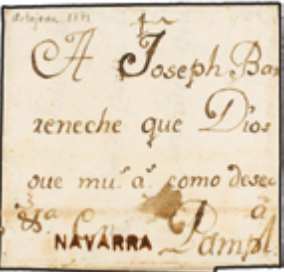 Artajona 1791
A Joseph Ba
reneche que Dios
gue mu.s a.s como desea
a
NAVARRA Pampl